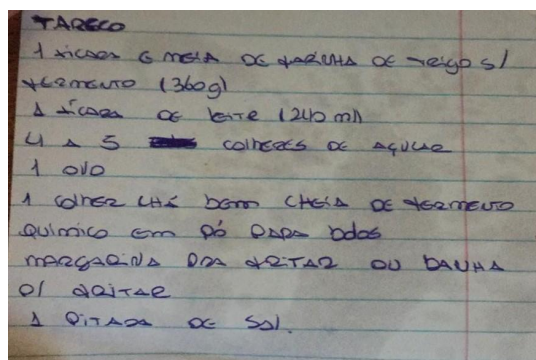 TARECO
1 xícara e meia de farinha de trigo s/
fermento (360g)
1 xícara de leite (240 ml)
4 a 5 colheres de açucar
1 ovo
1 colher chá bem cheia de fermento
químico em pó para bolos
margarina pra fritar ou banha
p/ fritar
1 pitada de sal.